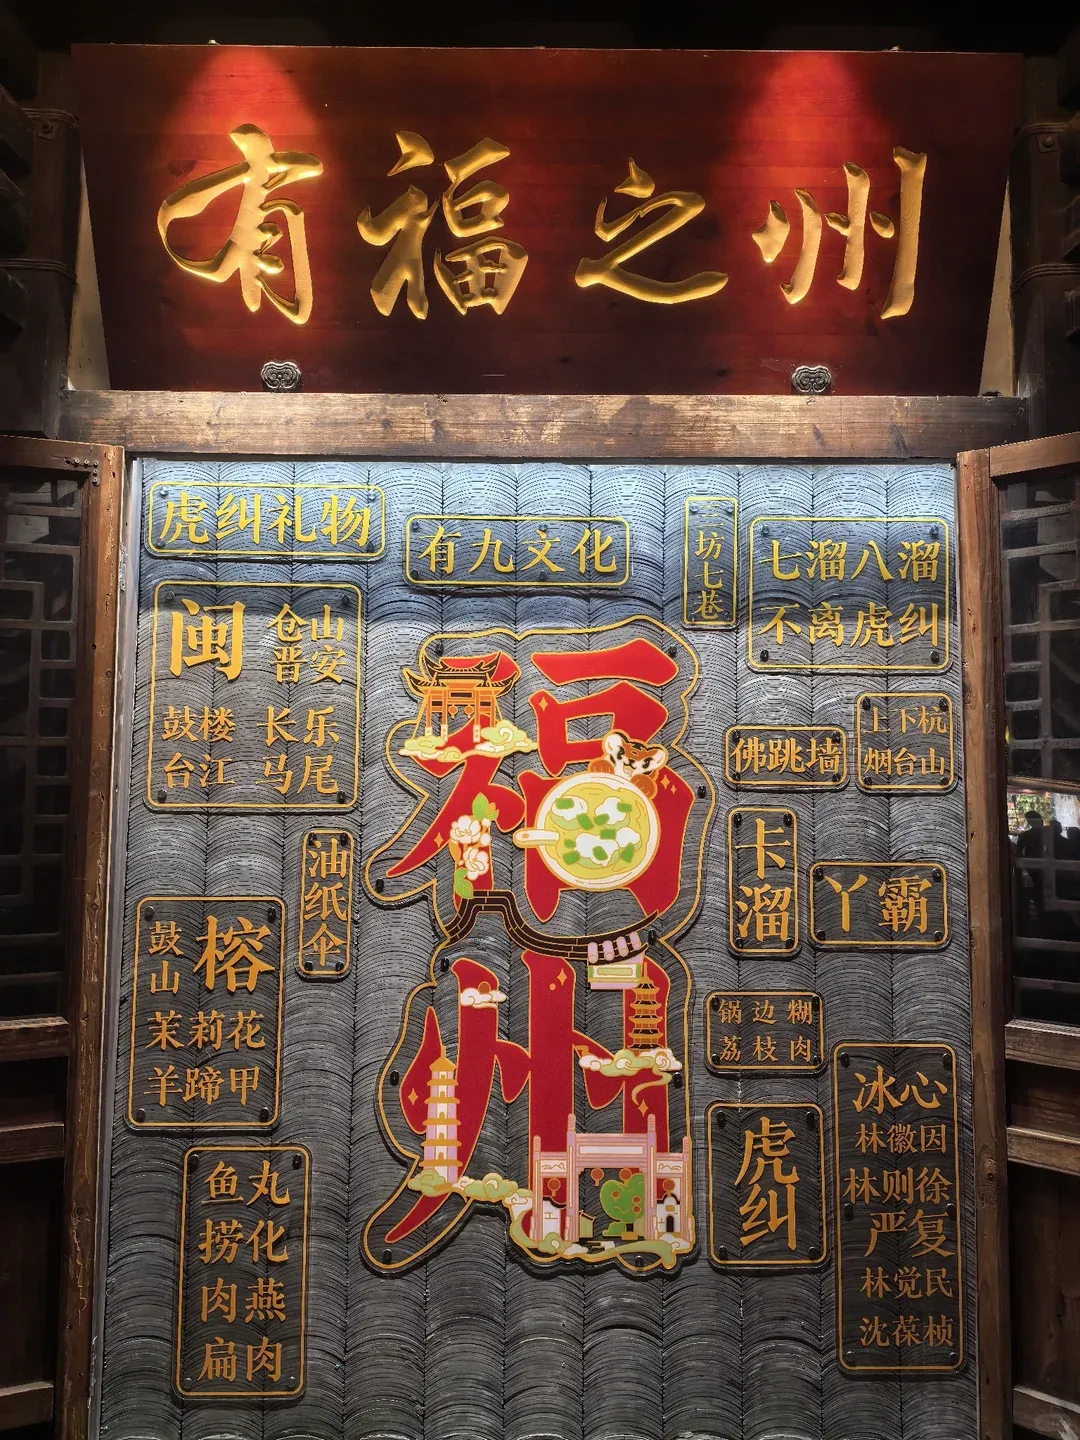 有福之州
虎纠礼物
有九文化
三坊七巷
七溜八溜
不离虎纠
闽
仓山
晋安
鼓楼 长乐
台江 马尾
福州
佛跳墙
上下杭
烟台山
油纸伞
卡溜
丫霸
鼓山
榕
茉莉花
羊蹄甲
锅边糊
荔枝肉
虎纠
冰心
林徽因
林则徐
严复
林觉民
沈葆桢
鱼丸
捞化
肉燕
扁肉